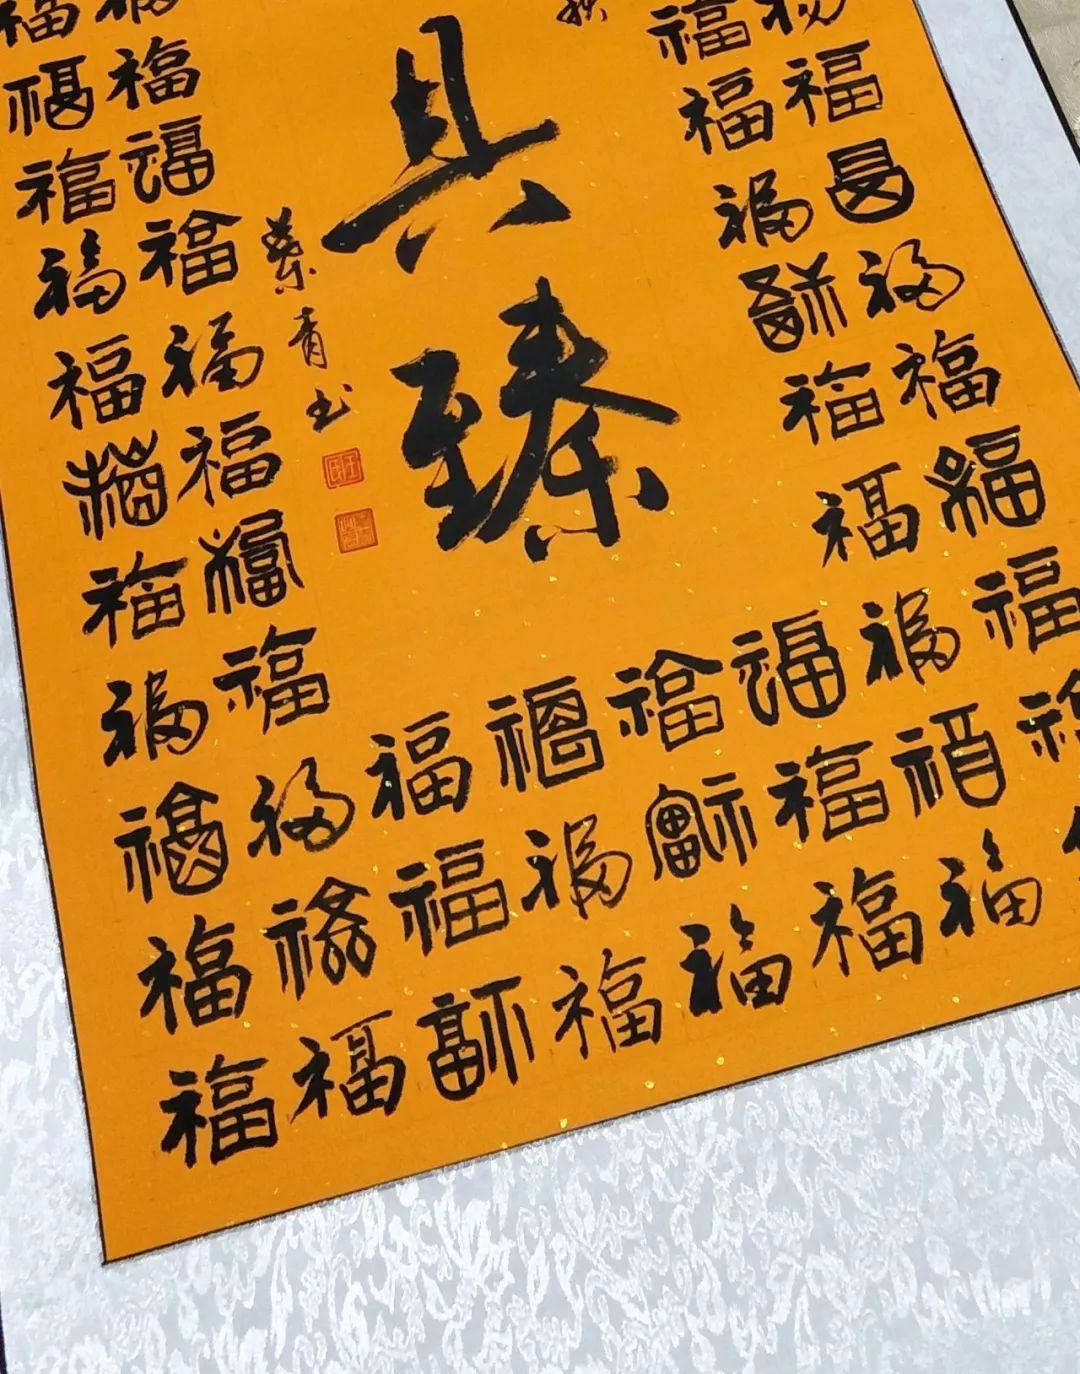 福福
福福
福福
福福
福福
福福
福福
福福
具臻
青书
福福
福福
福福
福福
福福
福福
福福福福福福福福
福福福福福福福
福福福福福福福